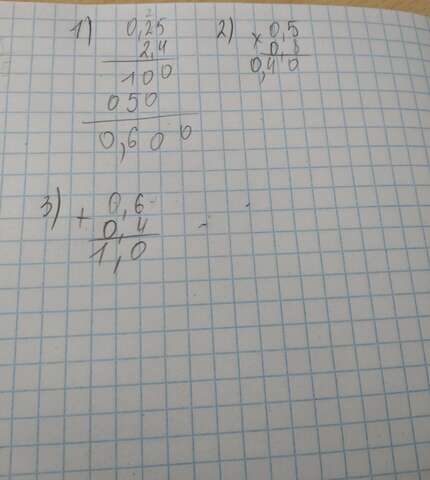 1) 0,25
2,4
100
050
0,600
2) × 0,5
0,8
0,40
3) + 0,6
0,4
1,0